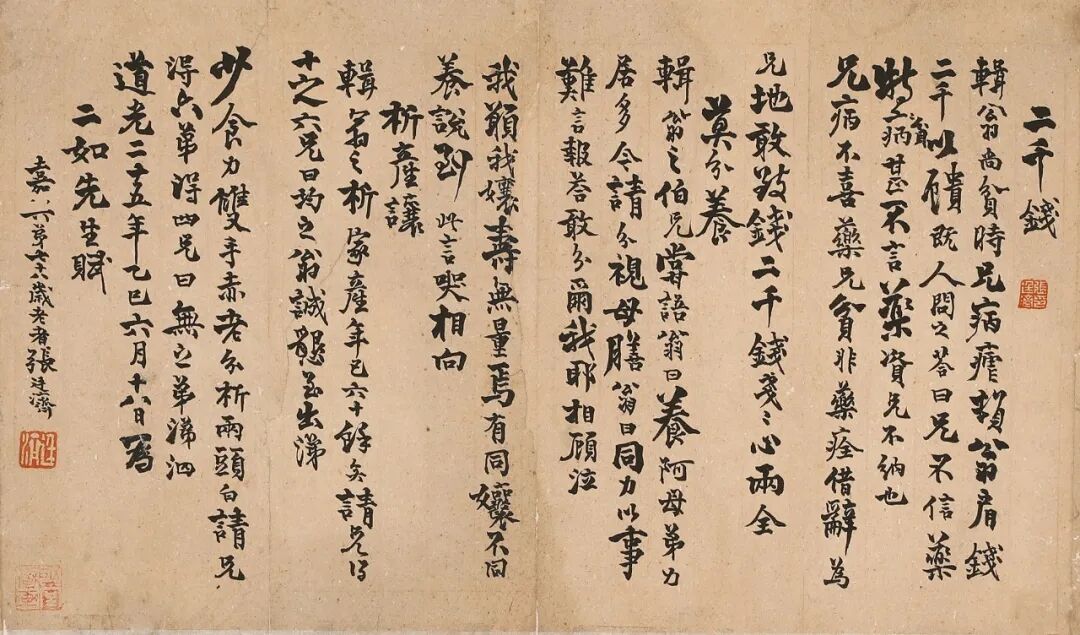 二千錢
輯翁尚貧時兄病瘧賴翁有錢
二千以饋既人問之答曰兄不信藥
翁
特子病甚不言藥資兄不納也
兄病不喜藥兄貧非藥痊借辭為
兄地敢歧錢二千錢戔〻心兩全
莫分養
輯翁之伯兄嘗語翁曰養阿母弟力
居多今請分視母膳翁曰同力以事
難言報荅敢分爾我耶相顧泣
我願我孃壽無量焉有同孃不同
養說到此言哭相向
析產讓
輯翁之析家產年已六十餘矣請兄得
十之六兄曰均之翁誠懇至出涕
少食力雙手赤老分析兩頭白請兄
得六弟得四兄曰無之弟涕泗
道光二十五年乙巳六月十八日為
二如先生賦
嘉興七十八歲老者張廷濟